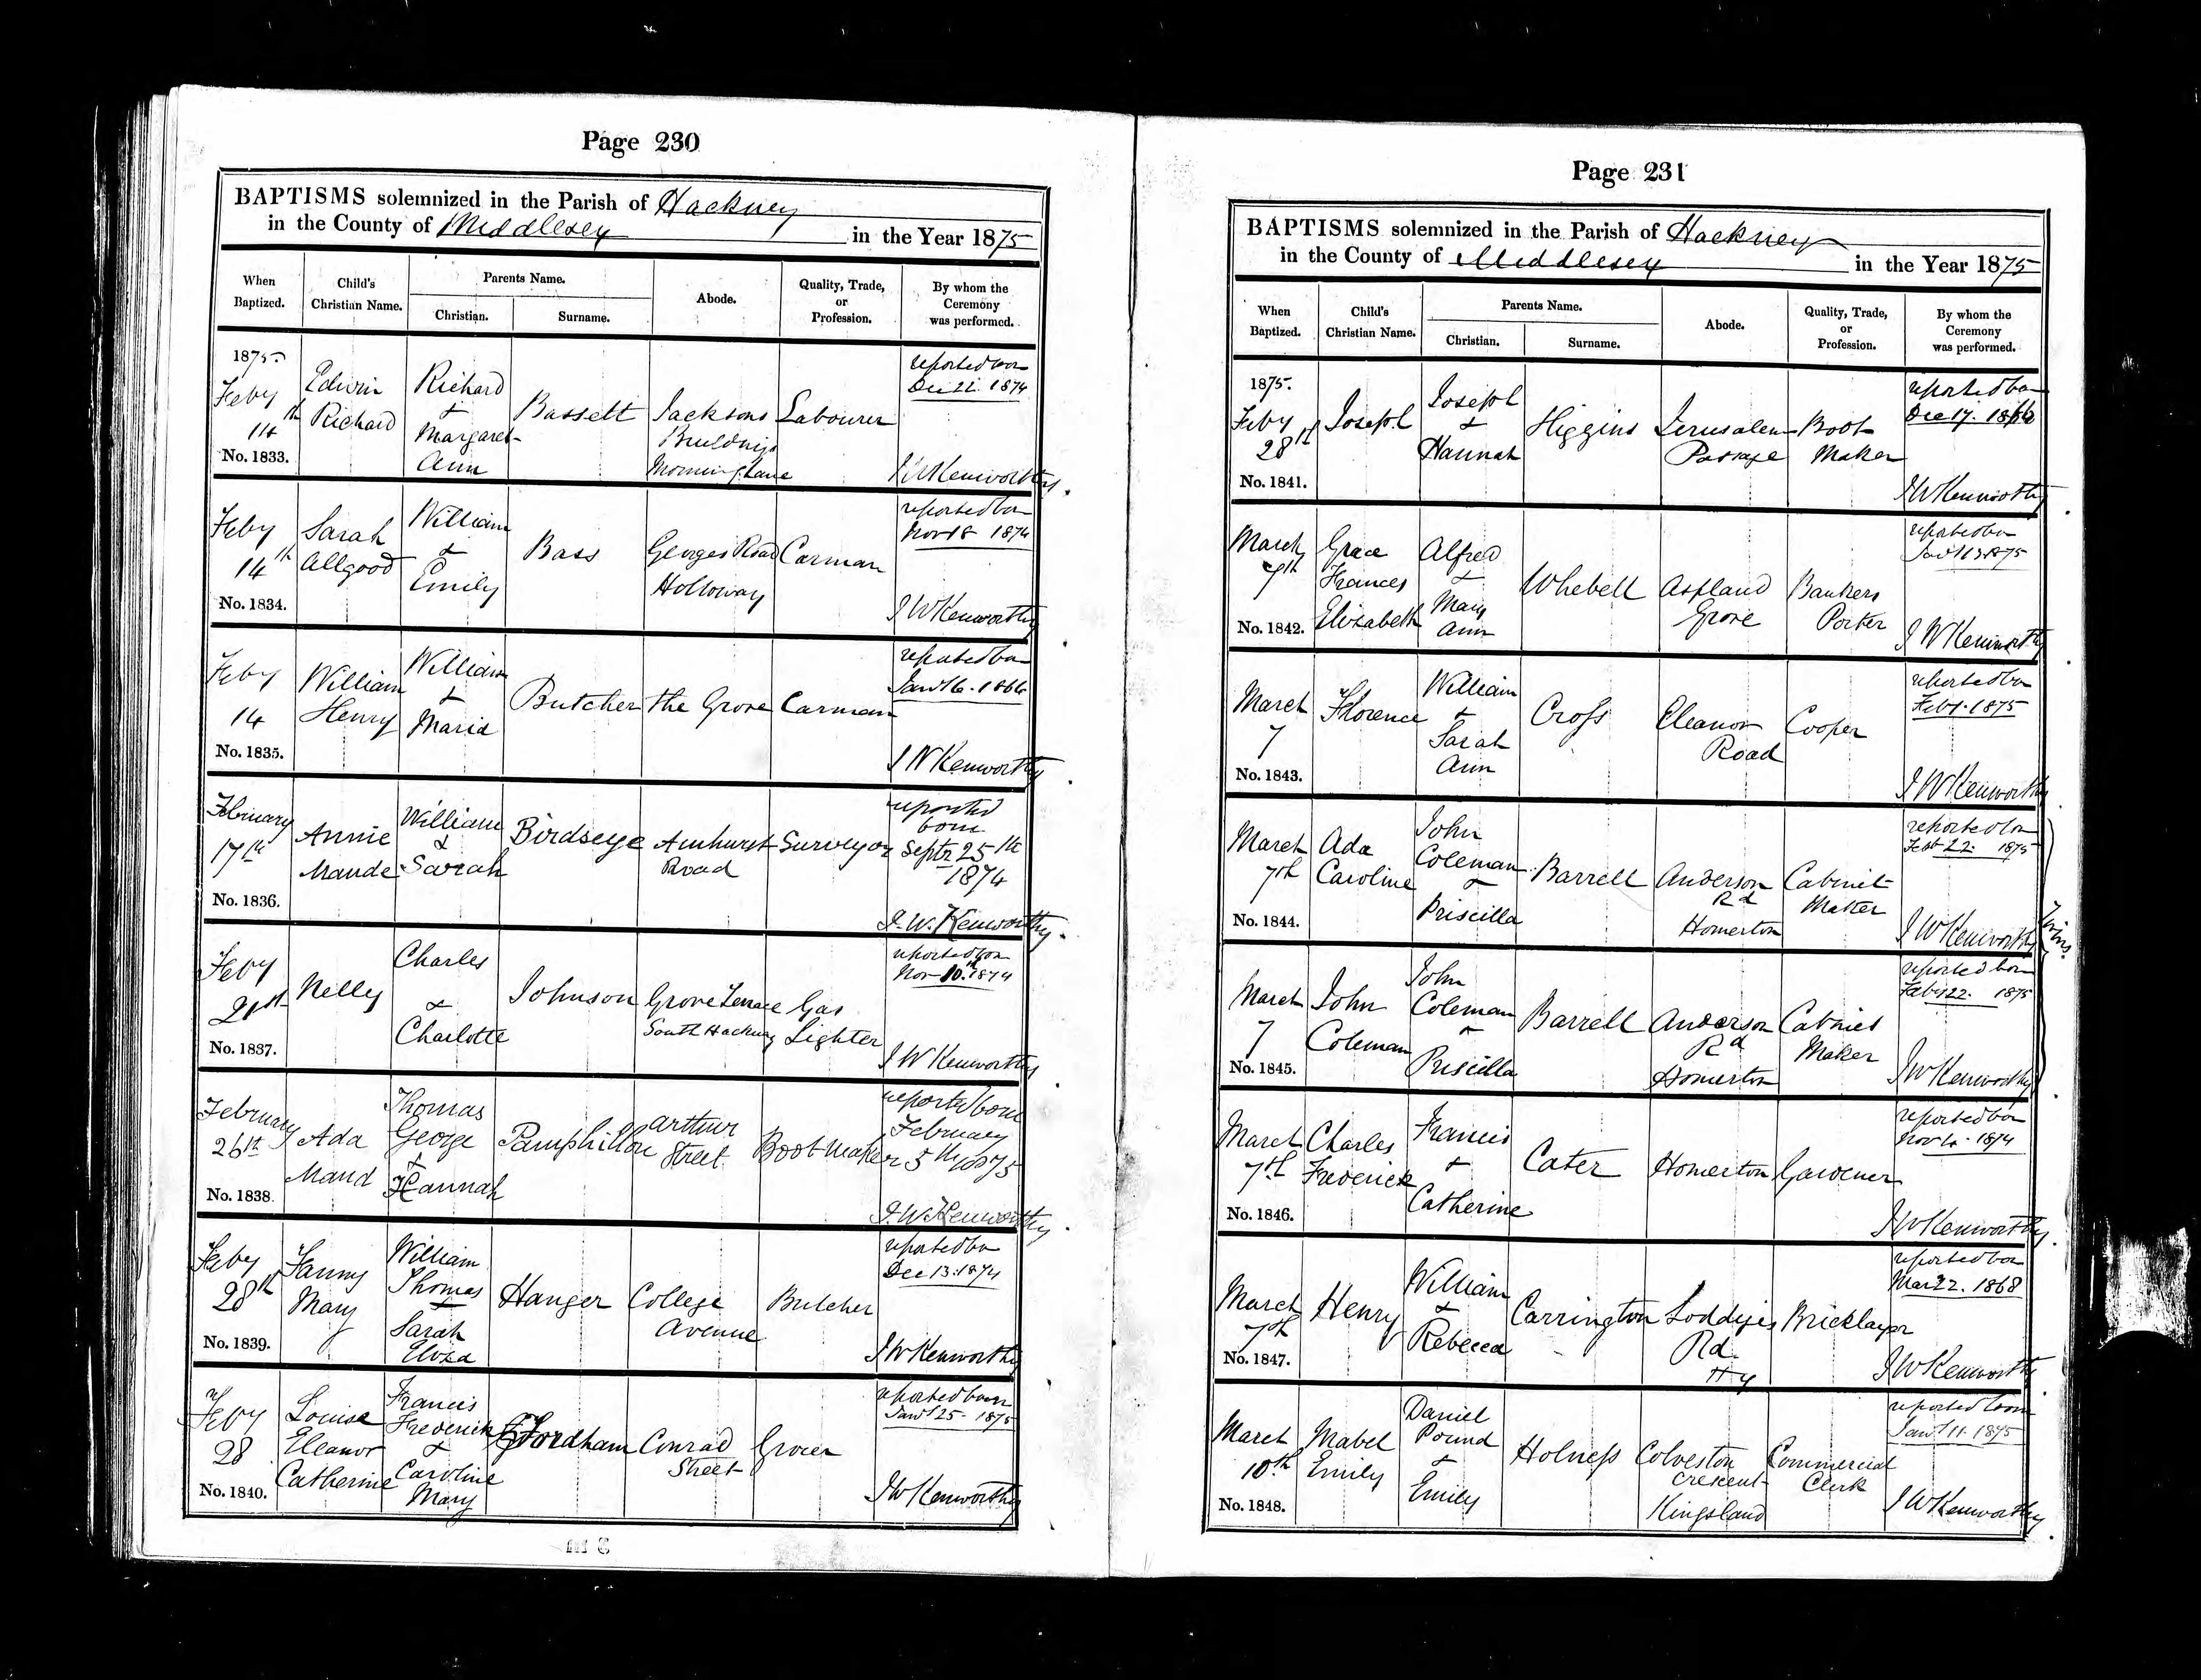 Page 230
BAPTISMS solemnized in the Parish of Hackney
in the County of Middlesex in the Year 1875
When Baptized.
Child's Christian Name.
Parents Name.
Christian.
Surname.
Abode.
Quality, Trade, or Profession.
By whom the Ceremony was performed.
1875.
Feby 14th
No. 1833.
Edwin Richard
Richard & Margaret Ann
Bassett
Jacksons Buildings Morning Lane
Labourer
reported born Dec 22. 1874
J W Kenworthy
Feby 14th
No. 1834.
Sarah Allgood
William & Emily
Bass
Georges Road Holloway
Carman
reported born Nov 18 1874
J W Kenworthy
Feby 14
No. 1835.
William Henry
William & Maria
Butcher
the Grove
Carman
reported born Jany 16. 1866
J W Kenworthy
February 17th
No. 1836.
Annie Maude
William & Sarah
Birdseye
Amhurst Road
Surveyor
reported born Septr 25th 1874
J. W. Kenworthy
Feby 21st
No. 1837.
Nelly
Charles & Charlotte
Johnson
Grove Terrace South Hackney
Gas Lighter
reported born Nov 10th 1874
J W Kenworthy
February 26th
No. 1838.
Ada Maud
Thomas George & Hannah
Pamphillon
Arthur Street
Boot Maker
reported born February 5th 1875
J. W. Kenworthy
Feby 28th
No. 1839.
Fanny Mary
William Thomas & Sarah Eliza
Hanger
College Avenue
Butcher
reported born Dec 13. 1874
J W Kenworthy
Feby 28
No. 1840.
Louise Eleanor Catherine
Francis Frederick & Caroline Mary
Fordham
Conrad Street
Grocer
reported born Jany 25 1875
J W Kenworthy
Page 231
BAPTISMS solemnized in the Parish of Hackney
in the County of Middlesex in the Year 1875
When Baptized.
Child's Christian Name.
Parents Name.
Christian.
Surname.
Abode.
Quality, Trade, or Profession.
By whom the Ceremony was performed.
1875.
Feby 28th
No. 1841.
Joseph
Joseph & Hannah
Higgins
Jerusalem Passage
Boot Maker
reported born Dec 17.
J W Kenworthy
March 7th
No. 1842.
Grace Frances Elizabeth
Alfred & Mary Ann
Whebell
Aspland Grove
Bankers Porter
reported born 1875
J W Kenworthy
March 7
No. 1843.
Florence
William & Sarah Ann
Cross
Eleanor Road
Cooper
reported born Feby 1. 1875
J W Kenworthy
March 7th
No. 1844.
Ada Caroline
John Coleman & Priscilla
Barrell
Anderson Rd Homerton
Cabinet Maker
reported born Feb 22. 1875
J W Kenworthy
Twins.
March 7
No. 1845.
John Coleman
John Coleman & Priscilla
Barrell
Anderson Rd Homerton
Cabinet Maker
reported born Feby 22. 1875
J W Kenworthy
March 7th
No. 1846.
Charles Frederick
Francis & Catherine
Cater
Homerton
Gardener
reported born Nov 4. 1874
J W Kenworthy
March 7th
No. 1847.
Henry
William & Rebecca
Carrington
Loddiges Rd. Hy
Bricklayer
reported born Mar 22. 1868
J W Kenworthy
March 10th
No. 1848.
Mabel Emily
Daniel Pound & Emily
Holness
Colveston Crescent Kingsland
Commercial Clerk
reported born Jany 11. 1875
J W Kenworthy